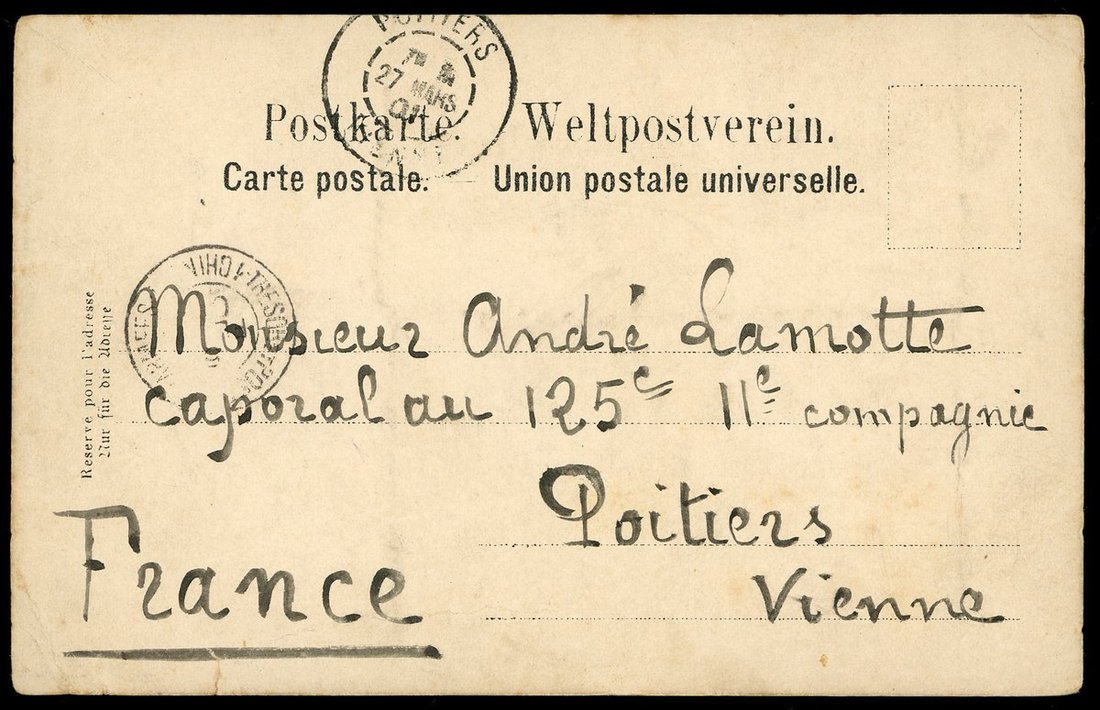 POITIERS
27 MARS
01
VIENNE
Postkarte. Weltpostverein.
Carte postale. — Union postale universelle.
Reserve pour l'adresse
Nur für die Adresse
Monsieur André Lamotte
caporal au 125e 11e compagnie
Poitiers
Vienne
France